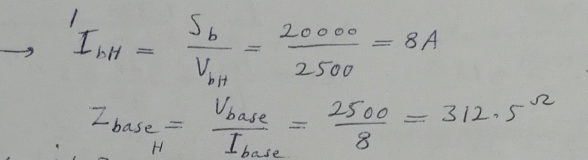 → I_bH = S_b / V_bH = 20000 / 2500 = 8A
Z_base H = V_base / I_base = 2500 / 8 = 312.5 Ω